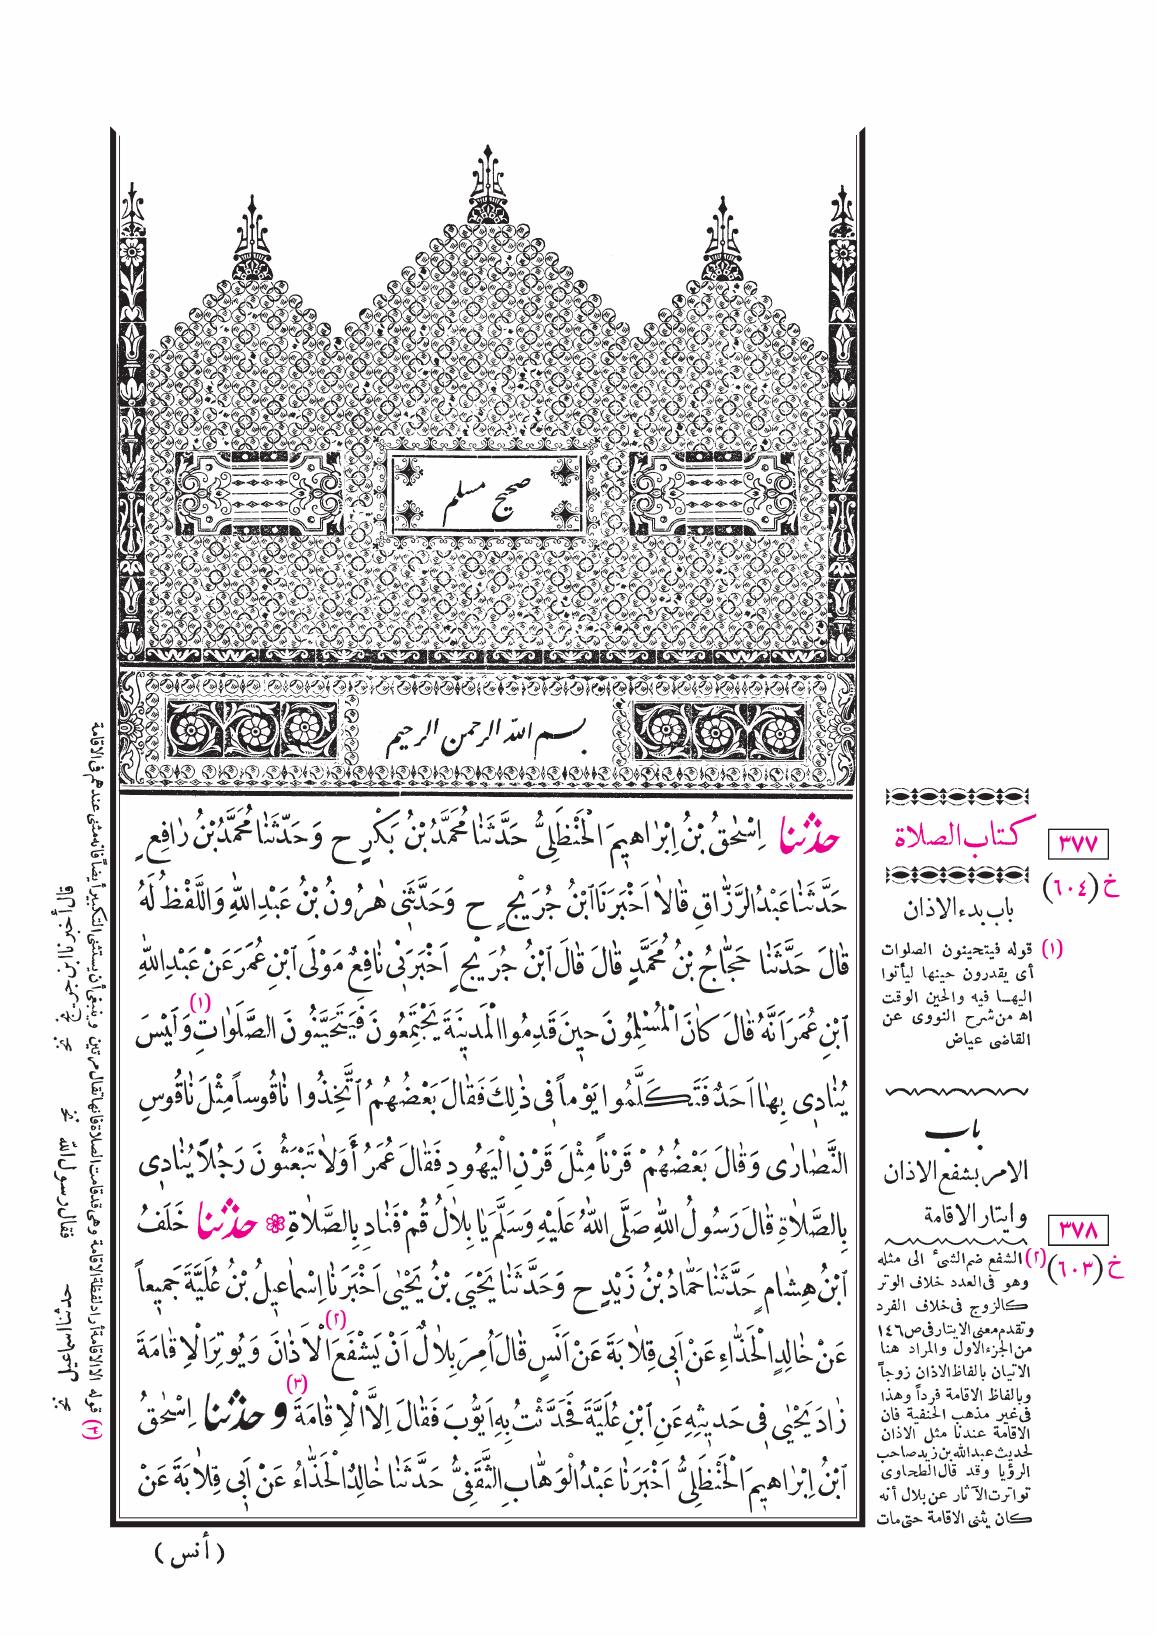 صحيح مسلم
بسم الله الرحمن الرحيم
حدثنا اِسْحٰقُ بْنُ اِبْرٰاهِيمَ الْحَنْظَلِىُّ حَدَّثَنَا مُحَمَّدُ بْنُ بَكْرٍ ح وَحَدَّثَنَا مُحَمَّدُ بْنُ رٰافِعٍ
حَدَّثَنَا عَبْدُ الرَّزَّاقِ قٰالاٰ اَخْبَرَنَا ابْنُ جُرَيْجٍ ح وَحَدَّثَنِى هٰرُونُ بْنُ عَبْدِ اللهِ وَاللَّفْظُ لَهُ
قٰالَ حَدَّثَنٰا حَجَّاجُ بْنُ مُحَمَّدٍ قٰالَ قٰالَ ابْنُ جُرَيْجٍ اَخْبَرَنِى نٰافِعٌ مَوْلَى ابْنِ عُمَرَ عَنْ عَبْدِ اللهِ
ابْنِ عُمَرَ اَنَّهُ قٰالَ كٰانَ الْمُسْلِمُونَ حِينَ قَدِمُوا الْمَدِينَةَ يَجْتَمِعُونَ فَيَتَحَيَّنُونَ الصَّلَوٰاتِ (١) وَلَيْسَ
يُنٰادِى بِهٰا اَحَدٌ فَتَكَلَّمُوا يَوْماً فِى ذٰلِكَ فَقٰالَ بَعْضُهُمُ اتَّخِذُوا نٰاقُوساً مِثْلَ نٰاقُوسِ
النَّصٰارٰى وَقٰالَ بَعْضُهُمْ قَرْناً مِثْلَ قَرْنِ الْيَهُودِ فَقٰالَ عُمَرُ أَوَلاٰ تَبْعَثُونَ رَجُلاً يُنٰادِى
بِالصَّلاٰةِ قٰالَ رَسُولُ اللهِ صَلَّى اللهُ عَلَيْهِ وَسَلَّمَ يٰا بِلاٰلُ قُمْ فَنٰادِ بِالصَّلاٰةِ ❁ حدثنا خَلَفُ
ابْنُ هِشٰامٍ حَدَّثَنٰا حَمّٰادُ بْنُ زَيْدٍ ح وَحَدَّثَنٰا يَحْيَى بْنُ يَحْيٰى اَخْبَرَنٰا اِسْمٰاعِيلُ بْنُ عُلَيَّةَ جَمِيعاً
عَنْ خٰالِدٍ الْحَذّٰاءِ عَنْ اَبِى قِلاٰبَةَ عَنْ اَنَسٍ قٰالَ اُمِرَ بِلاٰلٌ اَنْ يَشْفَعَ (٢) الْاَذٰانَ وَيُوتِرَ الْاِقٰامَةَ
زٰادَ يَحْيٰى فِى حَدِيثِهِ عَنِ ابْنِ عُلَيَّةَ فَحَدَّثْتُ بِهِ اَيُّوبَ فَقٰالَ اِلاَّ الْاِقٰامَةَ (٣) وحدثنا اِسْحٰقُ
ابْنُ اِبْرٰاهِيمَ الْحَنْظَلِىُّ اَخْبَرَنٰا عَبْدُ الْوَهّٰابِ الثَّقَفِىُّ حَدَّثَنٰا خٰالِدٌ الْحَذّٰاءُ عَنْ اَبِى قِلاٰبَةَ عَنْ
( أنس )
كتاب الصلاة
٣٧٧
خ (٦٠٤)
باب بدء الاذان
(١) قوله فيتحينون الصلوات
أى يقدرون حينها ليأتوا
اليها فيه والحين الوقت
اه من شرح النووى عن
القاضى عياض
باب
الامر بشفع الاذان
وايتار الاقامة
٣٧٨
خ (٦٠٣)
(٢) الشفع ضم الشىء الى مثله
وهو فى العدد خلاف الوتر
كالزوج فى خلاف الفرد
وتقدم معنى الايتار فى ص ١٤٦
من الجزء الاول والمراد هنا
الاتيان بالفاظ الاذان زوجاً
وبالفاظ الاقامة فرداً وهذا
فى غير مذهب الحنفية فان
الاقامة عندنا مثل الاذان
لحديث عبدالله بن زيد صاحب
الرؤيا وقد قال الطحاوى
تواترت الآثار عن بلال أنه
كان يثنى الاقامة حتى مات
(٣) قوله الا الاقامة أراد لفظة الاقامة وهى قد قامت الصلاة فانها تقال مرتين وينبغى أن يستثنى التكبير أيضاً فانه مثنى عندهم فى الاقامة
فقال رسول الله